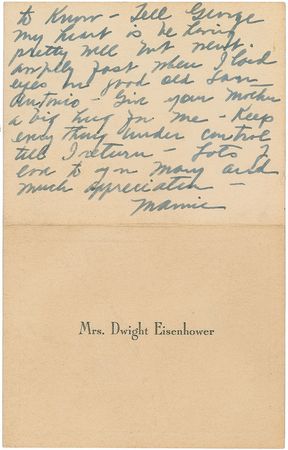 to Know – Tell George
my heart is be
pretty well but went
fast when I laid
eyes on good old San
Antonio – Give your mother
a big hug for me – Keep
everything under control
till I return – Lots of
love to you Mary and
much appreciation –
Mamie
Mrs. Dwight Eisenhower